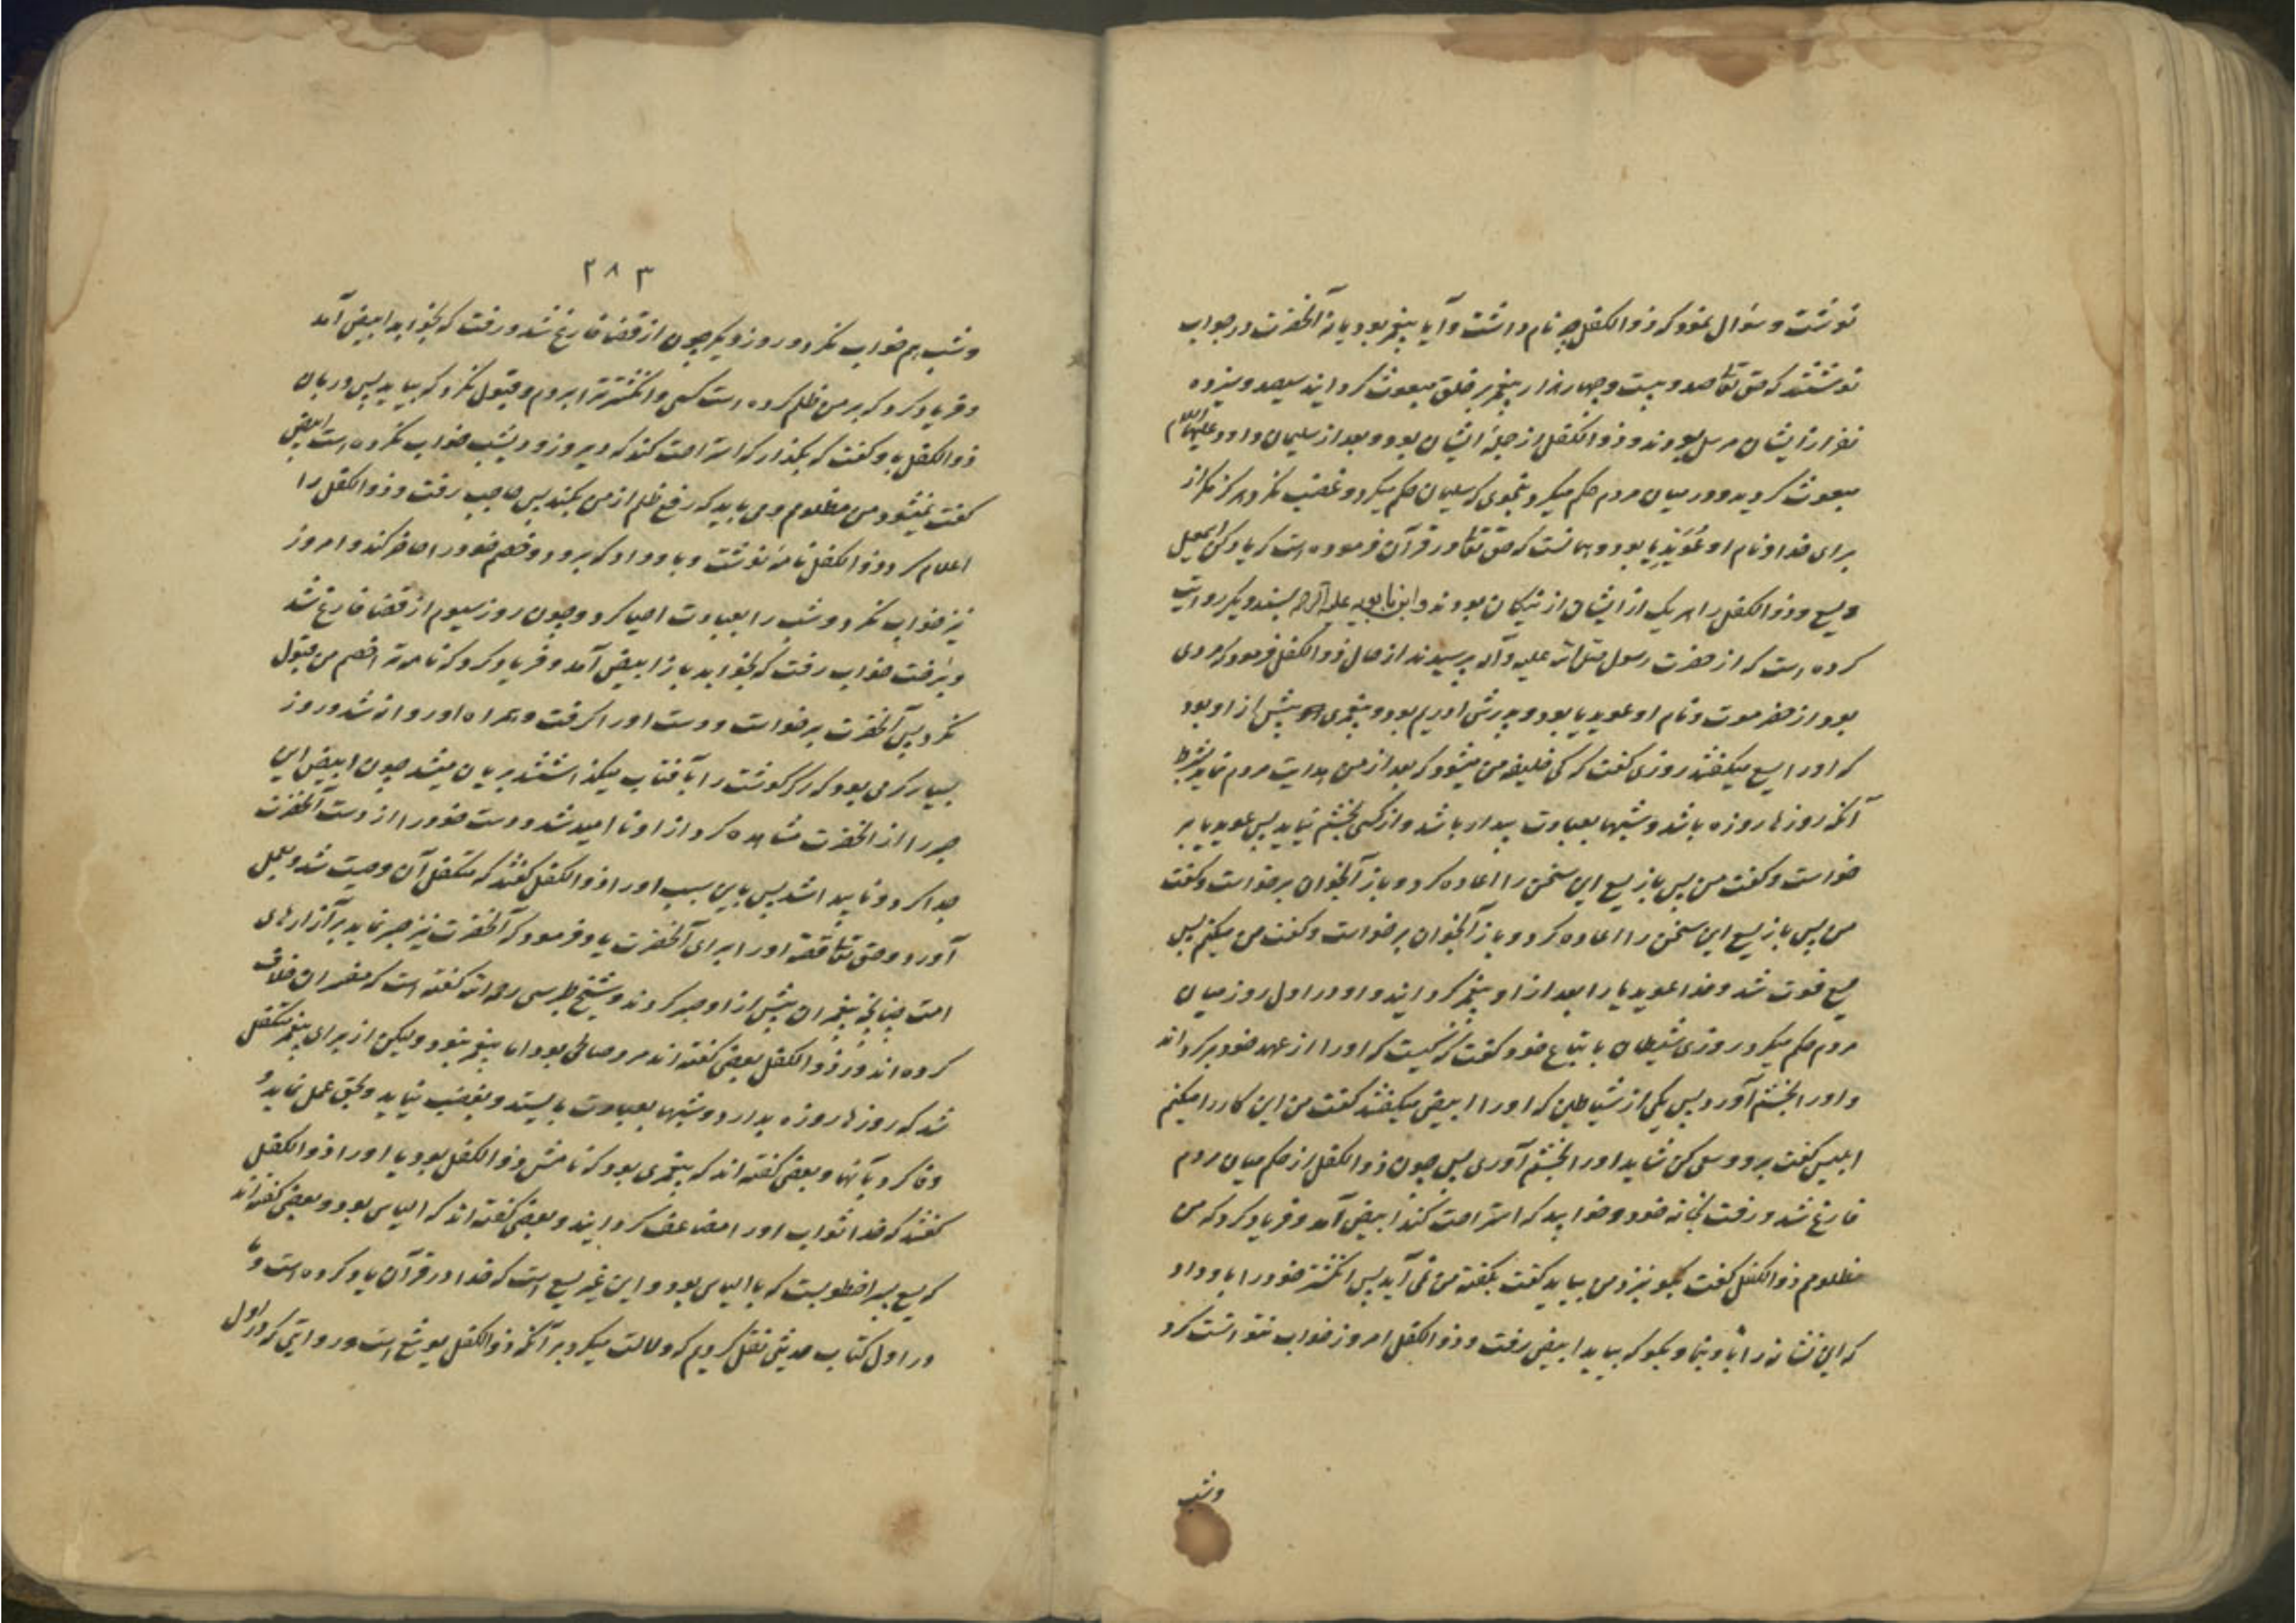 نوشت و سؤال نمود که ذوالکفل چه نام داشت و آیا پیغمبر بود یا نه آنحضرت در جواب
نوشتند که حق تعالی صد و بیست و چهار هزار پیغمبر بر خلق مبعوث گردانید سیصد و سیزده
نفر از ایشان مرسل بودند و ذوالکفل از جمله ایشان بود و بعد از سلیمان داود علیهما السلام
مبعوث گردید و در میان مردم حکم میکرد بنحوی که سلیمان حکم میکرد و غضب نکرد هرگز مگر از
برای خدا و نام او عُوَیْدِیا بود و همانست که حق تعالی در قرآن فرموده است که یاد کن اسمعیل
و یسع و ذوالکفل را هر یک از ایشان از نیکان بودند و ابن بابویه علیه الرحمه بسند دیگر روایت
کرده است که از حضرت رسول صلی الله علیه وآله پرسیدند از حال ذوالکفل فرمود که مردی
بود از حضرموت و نام او عویدیا بود و پدرش ادریم بود و پیغمبری پیش از او بود
که او را یسع میگفتند روزی گفت که کی خلیفه من میشود که بعد از من هدایت مردم نماید بشرط
آنکه روزها روزه باشد و شبها بعبادت بیدار باشد و از کسی بخشم نیاید پس عویدیا بر
خواست و گفت من پس باز یسع این سخن را اعاده کرد و باز آنجوان برخواست و گفت
من پس باز یسع این سخن را اعاده کرد و باز آنجوان برخواست و گفت من میکنم پس
یسع فوت شد و خدا عویدیا را بعد از او پیغمبر گردانید و او در اول روز میان
مردم حکم میکرد روزی شیطان باتباع خود گفت که کیست که او را از عهد خود برگرداند
و او را بخشم آورد پس یکی از شیاطین که او را ابیض میگفتند گفت من این کار را میکنم
ابلیس گفت برو و سعی کن شاید او را بخشم آوری پس چون ذوالکفل از حکم میان مردم
فارغ شد و رفت بخانه خود و خوابید که استراحت کند ابیض آمد و فریاد کرد که من
مظلومم ذوالکفل گفت بگو نزد من بیاید گفت بگفته من نمی آید پس انگشتر خود را باو داد
که این نشانه را باو بنما و بگو که بیاید ابیض رفت و ذوالکفل امروز خواب نتوانست کرد
وشب
۲۸۳
و شب هم خواب نکرد و روز دیگر چون از قضا فارغ شد و رفت که بخوابد ابیض آمد
و فریاد کرد که بر من ظلم کرده است کسی و انگشتر ترا بردم و قبول نکرد که بیاید پس دربان
ذوالکفل باو گفت که بگذار که استراحت کند که دیروز و دیشب خواب نکرده است ابیض
گفت نمیشود من مظلومم و می باید که رفع ظلم از من بکند پس حاجب رفت و ذوالکفل را
اعلام کرد و ذوالکفل نامه نوشت و باو داد که برود و خصم خود را حاضر کند و امروز
نیز خواب نکرد و شب را بعبادت احیا کرد و چون روز سیوم از قضا فارغ شد
و برخت خواب رفت که بخوابد باز ابیض آمد و فریاد کرد که نامه ترا خصم من قبول
نکرد پس آنحضرت برخواست و دست او را گرفت و همراه او روانه شد و روز
بسیار گرمی بود که اگر گوشت را بآفتاب میگذاشتند بریان میشد چون ابیض این
صبر را از آنحضرت مشاهده کرد از او نا امید شد و دست خود را از دست آنحضرت
جدا کرد و ناپیدا شد پس باین سبب او را ذوالکفل گفتند که متکفل آن وصیت شد و بعمل
آورد و حق تعالی قصه او را برای آنحضرت یاد فرمود که آنحضرت نیز صبر نماید بر آزارهای
امت چنانچه پیغمبران پیش از او صبر کردند و شیخ طبرسی رحمه الله گفته است که مفسران خلاف
کرده اند در ذوالکفل بعضی گفته اند مرد صالحی بود اما پیغمبر نبود و لیکن از برای پیغمبر متکفل
شد که روزها روزه بدارد و شبها بعبادت بایستد و بغضب نیاید و بحق عمل نماید و
وفا کرد بآنها و بعضی گفته اند که پیغمبری بود که نامش ذوالکفل بود یا او را ذوالکفل
گفتند که خدا ثواب او را مضاعف گردانید و بعضی گفته اند که الیاس بود و بعضی گفته اند
که یسع پسر اخطوبست که با الیاس بود و این غیر یسع است که خدا در قرآن یاد کرده است و ما
در اول کتاب حدیثی نقل کردیم که دلالت میکرد بر آنکه ذوالکفل یوشع است و روایتی که در اول